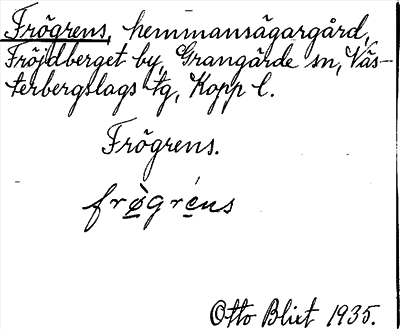 Frögrens, hemmansägargård,
Fröjdberget by, Grangärde sn, Väs-
terbergslags tg, Kopp l.
Frögrens.
frø̀gréns
Otto Blixt 1935.